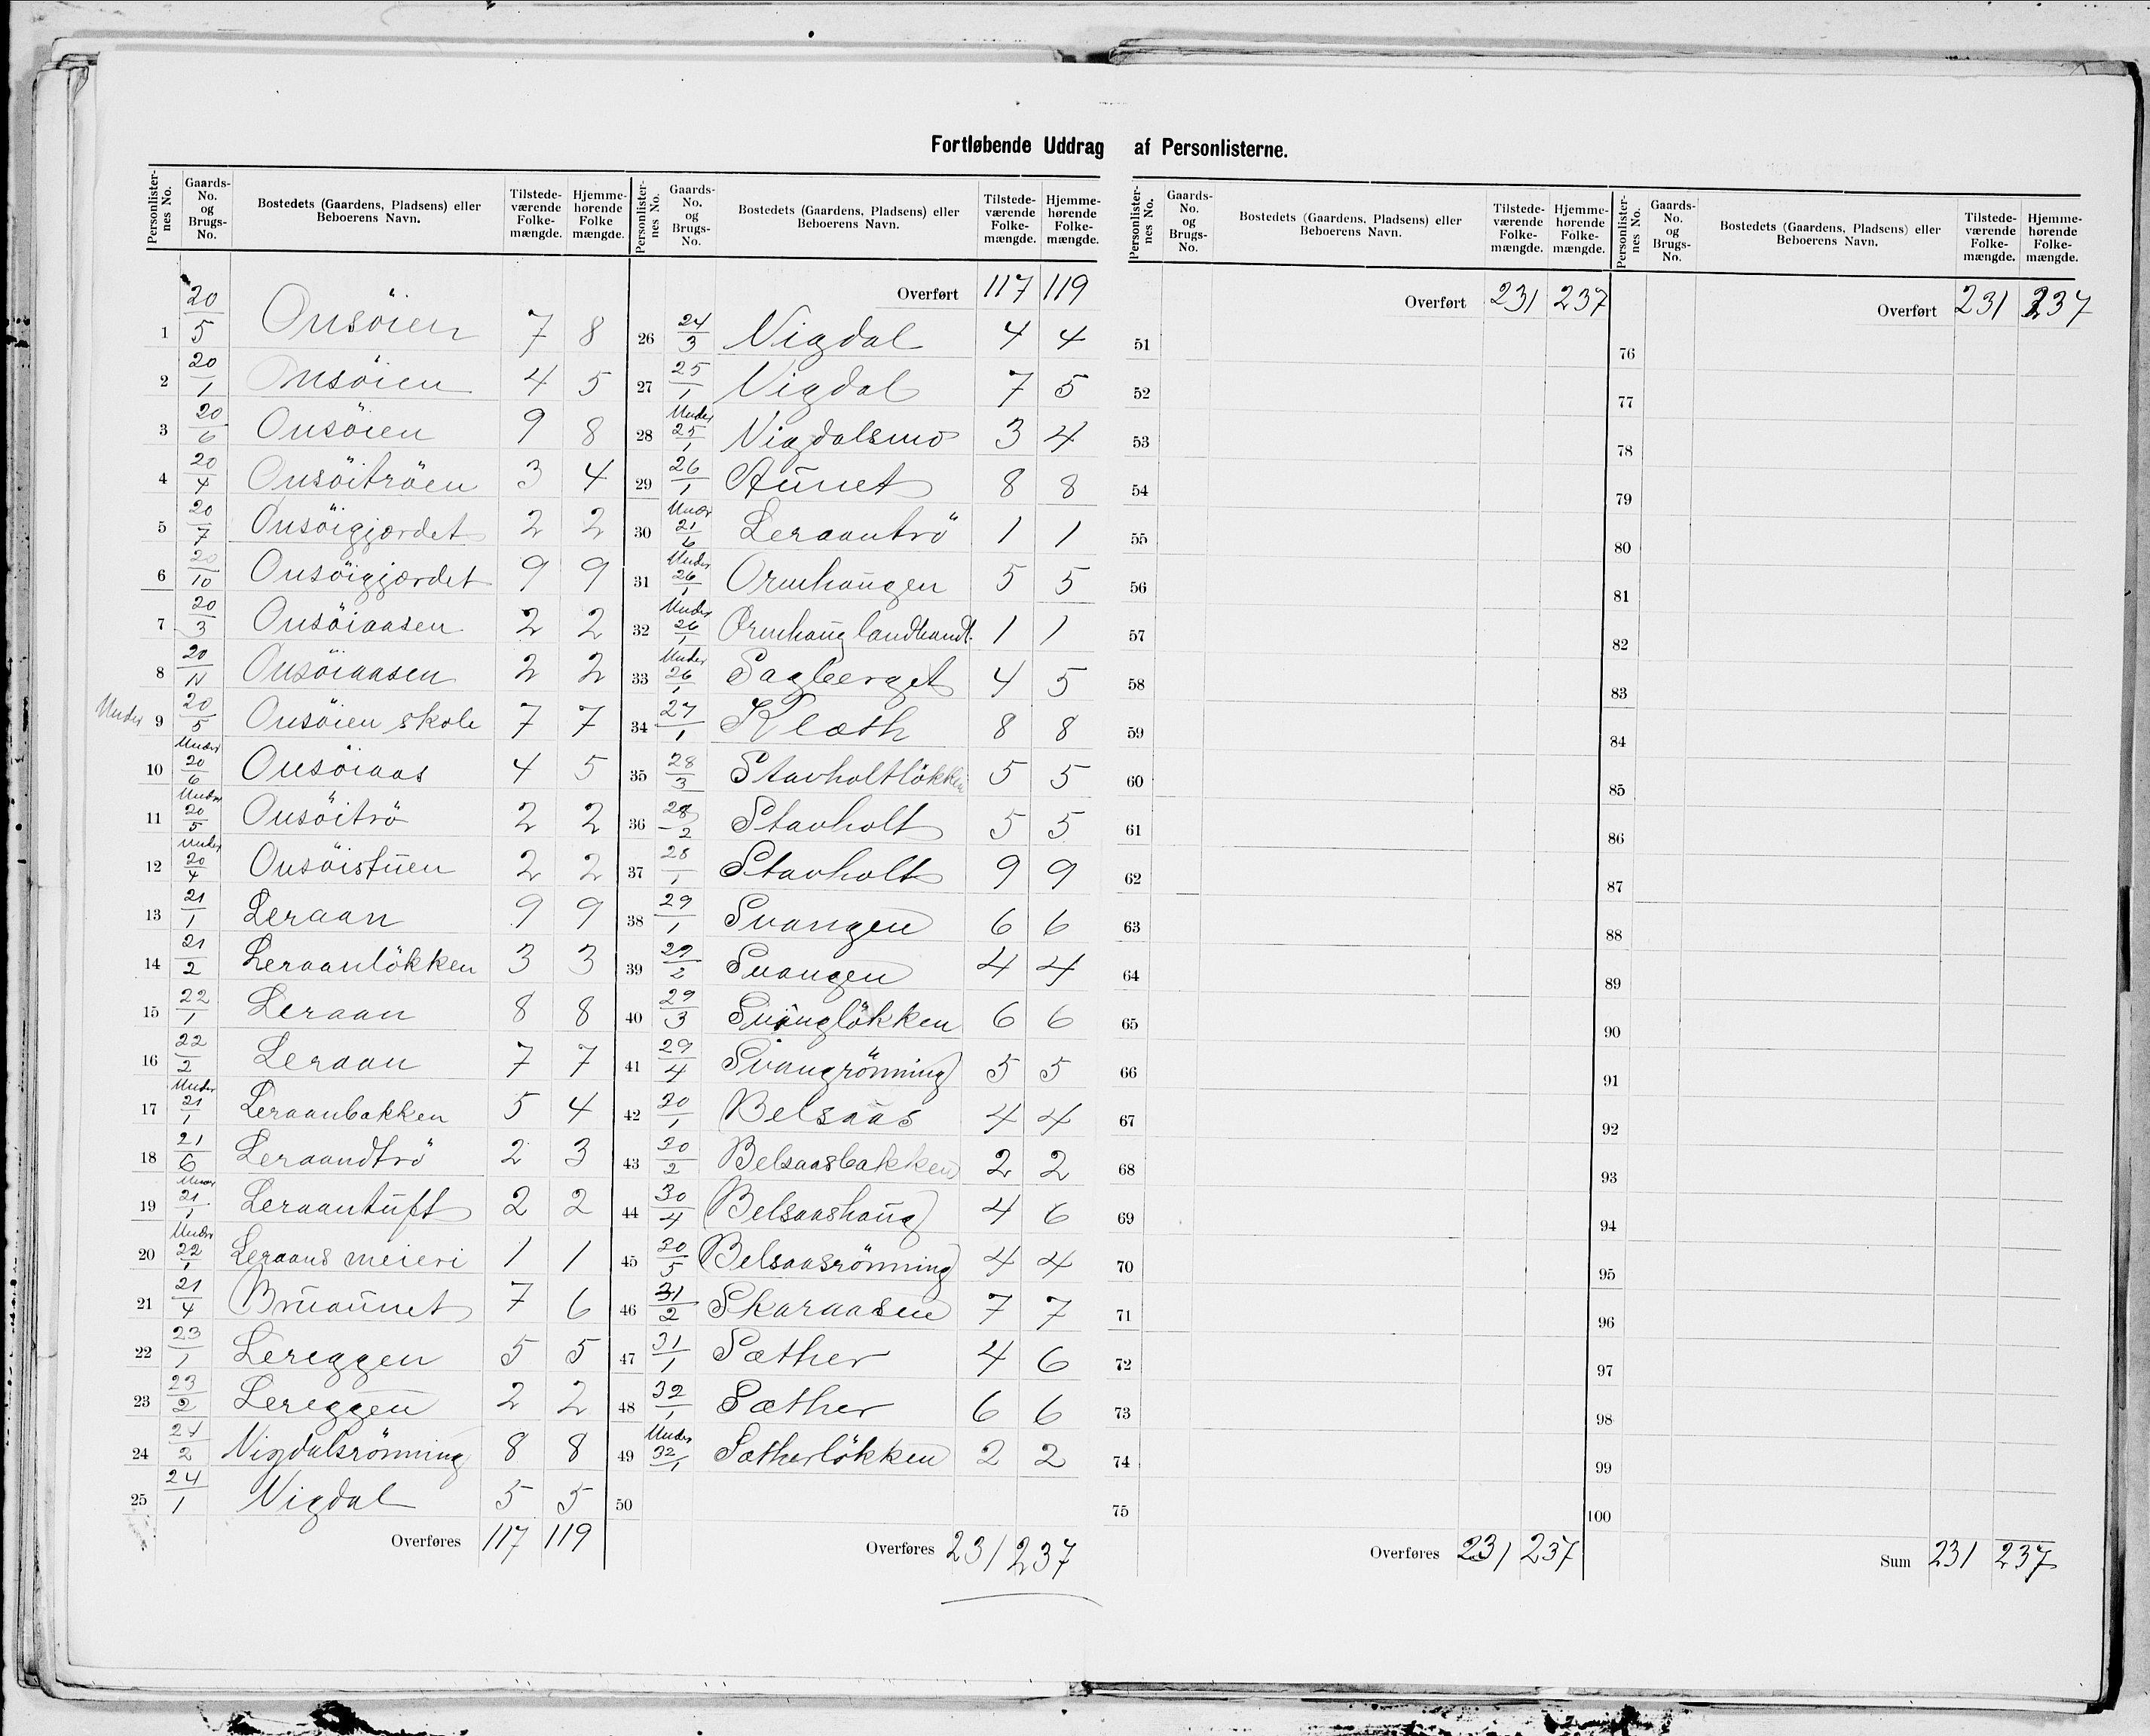 Fortløbende Uddrag af Personlisterne.
Personlisternes No. Gaards-No. og Brugs-No. Bostedets (Gaardens, Pladsens) eller Beboerens Navn. Tilstedeværende Folkemængde. Hjemmehørende Folkemængde.
1 20/5 Onsöien 7 8
2 20/1 Onsöien 4 5
3 20/6 Onsöien 9 8
4 20/4 Onsöitröen 3 4
5 20/7 Onsöigjærdet 2 2
6 20/10 Onsöiggjærdet 9 9
7 20/3 Onsöiaasen 2 2
8 20/11 Onsöiaasen 2 2
9 Under 20/5 Onsöien skole 7 7
10 Under 20/6 Onsöiaas 4 5
11 Under 20/5 Onsöitrö 2 2
12 Under 20/4 Onsöistuen 2 2
13 21/1 Leraan 9 9
14 21/2 Leraanlökken 3 3
15 22/1 Leraan 8 8
16 22/2 Leraan 7 7
17 Under 21/1 Leraanbakken 5 4
18 21/6 Leraandtrö 2 3
19 Under 21/1 Leraantuft 2 2
20 Under 22/1 Leraans meieri 1 1
21 21/4 Bruaunet 7 6
22 23/1 Lereggen 5 5
23 23/2 Lereggen 2 2
24 24/2 Vigdalsrönning 8 8
25 24/1 Vigdal 5 5
Overføres 117 119
Personlisternes No. Gaards-No. og Brugs-No. Bostedets (Gaardens, Pladsens) eller Beboerens Navn. Tilstedeværende Folkemængde. Hjemmehørende Folkemængde.
Overført 117 119
26 24/3 Vigdal 4 4
27 25/1 Vigdal 7 5
28 Under 25/1 Vigdalsmo 3 4
29 26/1 Aunet 8 8
30 Under 21/6 Leraantrö 1 1
31 Under 26/1 Ormhaugen 5 5
32 Under 26/1 Ormhaug landhandl. 1 1
33 Under 26/1 Sagberget 4 5
34 27/1 Klæth 8 8
35 28/3 Stavholtlökken 5 5
36 28/2 Stavholt 5 5
37 28/1 Stavholt 9 9
38 29/1 Svangen 6 6
39 29/2 Svangen 4 4
40 29/3 Svanglökken 6 6
41 29/4 Svangrönning 5 5
42 30/1 Belsaas 4 4
43 30/2 Belsaasbakken 2 2
44 30/4 Belsaashaug 4 6
45 30/5 Belsaasrönning 4 4
46 31/2 Skaraasen 7 7
47 31/1 Sæther 4 6
48 32/1 Sæther 6 6
49 Under 32/1 Sætherlökken 2 2
50
Overføres 231 237
Personlisternes No. Gaards-No. og Brugs-No. Bostedets (Gaardens, Pladsens) eller Beboerens Navn. Tilstedeværende Folkemængde. Hjemmehørende Folkemængde.
Overført 231 237
51
52
53
54
55
56
57
58
59
60
61
62
63
64
65
66
67
68
69
70
71
72
73
74
75
Overføres 231 237
Personlisternes No. Gaards-No. og Brugs-No. Bostedets (Gaardens, Pladsens) eller Beboerens Navn. Tilstedeværende Folkemængde. Hjemmehørende Folkemængde.
Overført 231 237
76
77
78
79
80
81
82
83
84
85
86
87
88
89
90
91
92
93
94
95
96
97
98
99
100
Sum 231 237